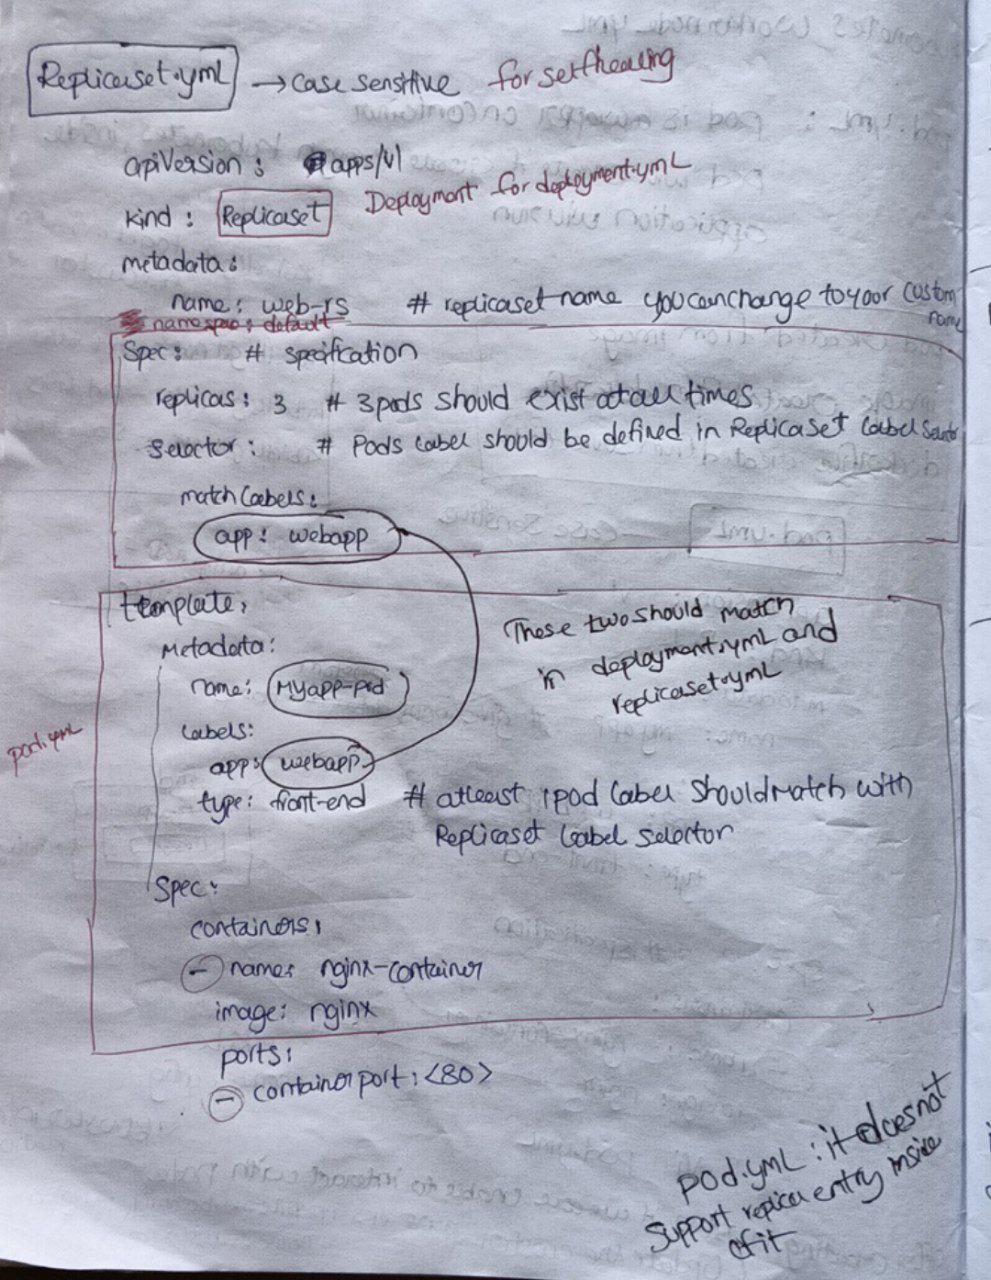 Replicaset.yml → case sensitive for selfhealing
apiVersion: apps/v1
kind: Replicaset Deployment for deployment.yml
metadata:
name: web-rs # replicaset name you can change to your custom name
namespac: default
Spec: # specification
replicas: 3 # 3 pods should exist at all times
selector: # Pods label should be defined in ReplicaSet label
matchlabels:
app: webapp
template:
Metadata:
name: Myapp-pod
labels:
app: webapp
type: front-end # atleast 1 pod label should match with
Replicaset label selector
These two should match
in deployment.yml and
replicaset.yml
pod.yml
Spec:
containers:
- name: nginx-container
image: nginx
ports:
- containerport: <80>
pod.yml: it doesnot
support replica entry inside
of it